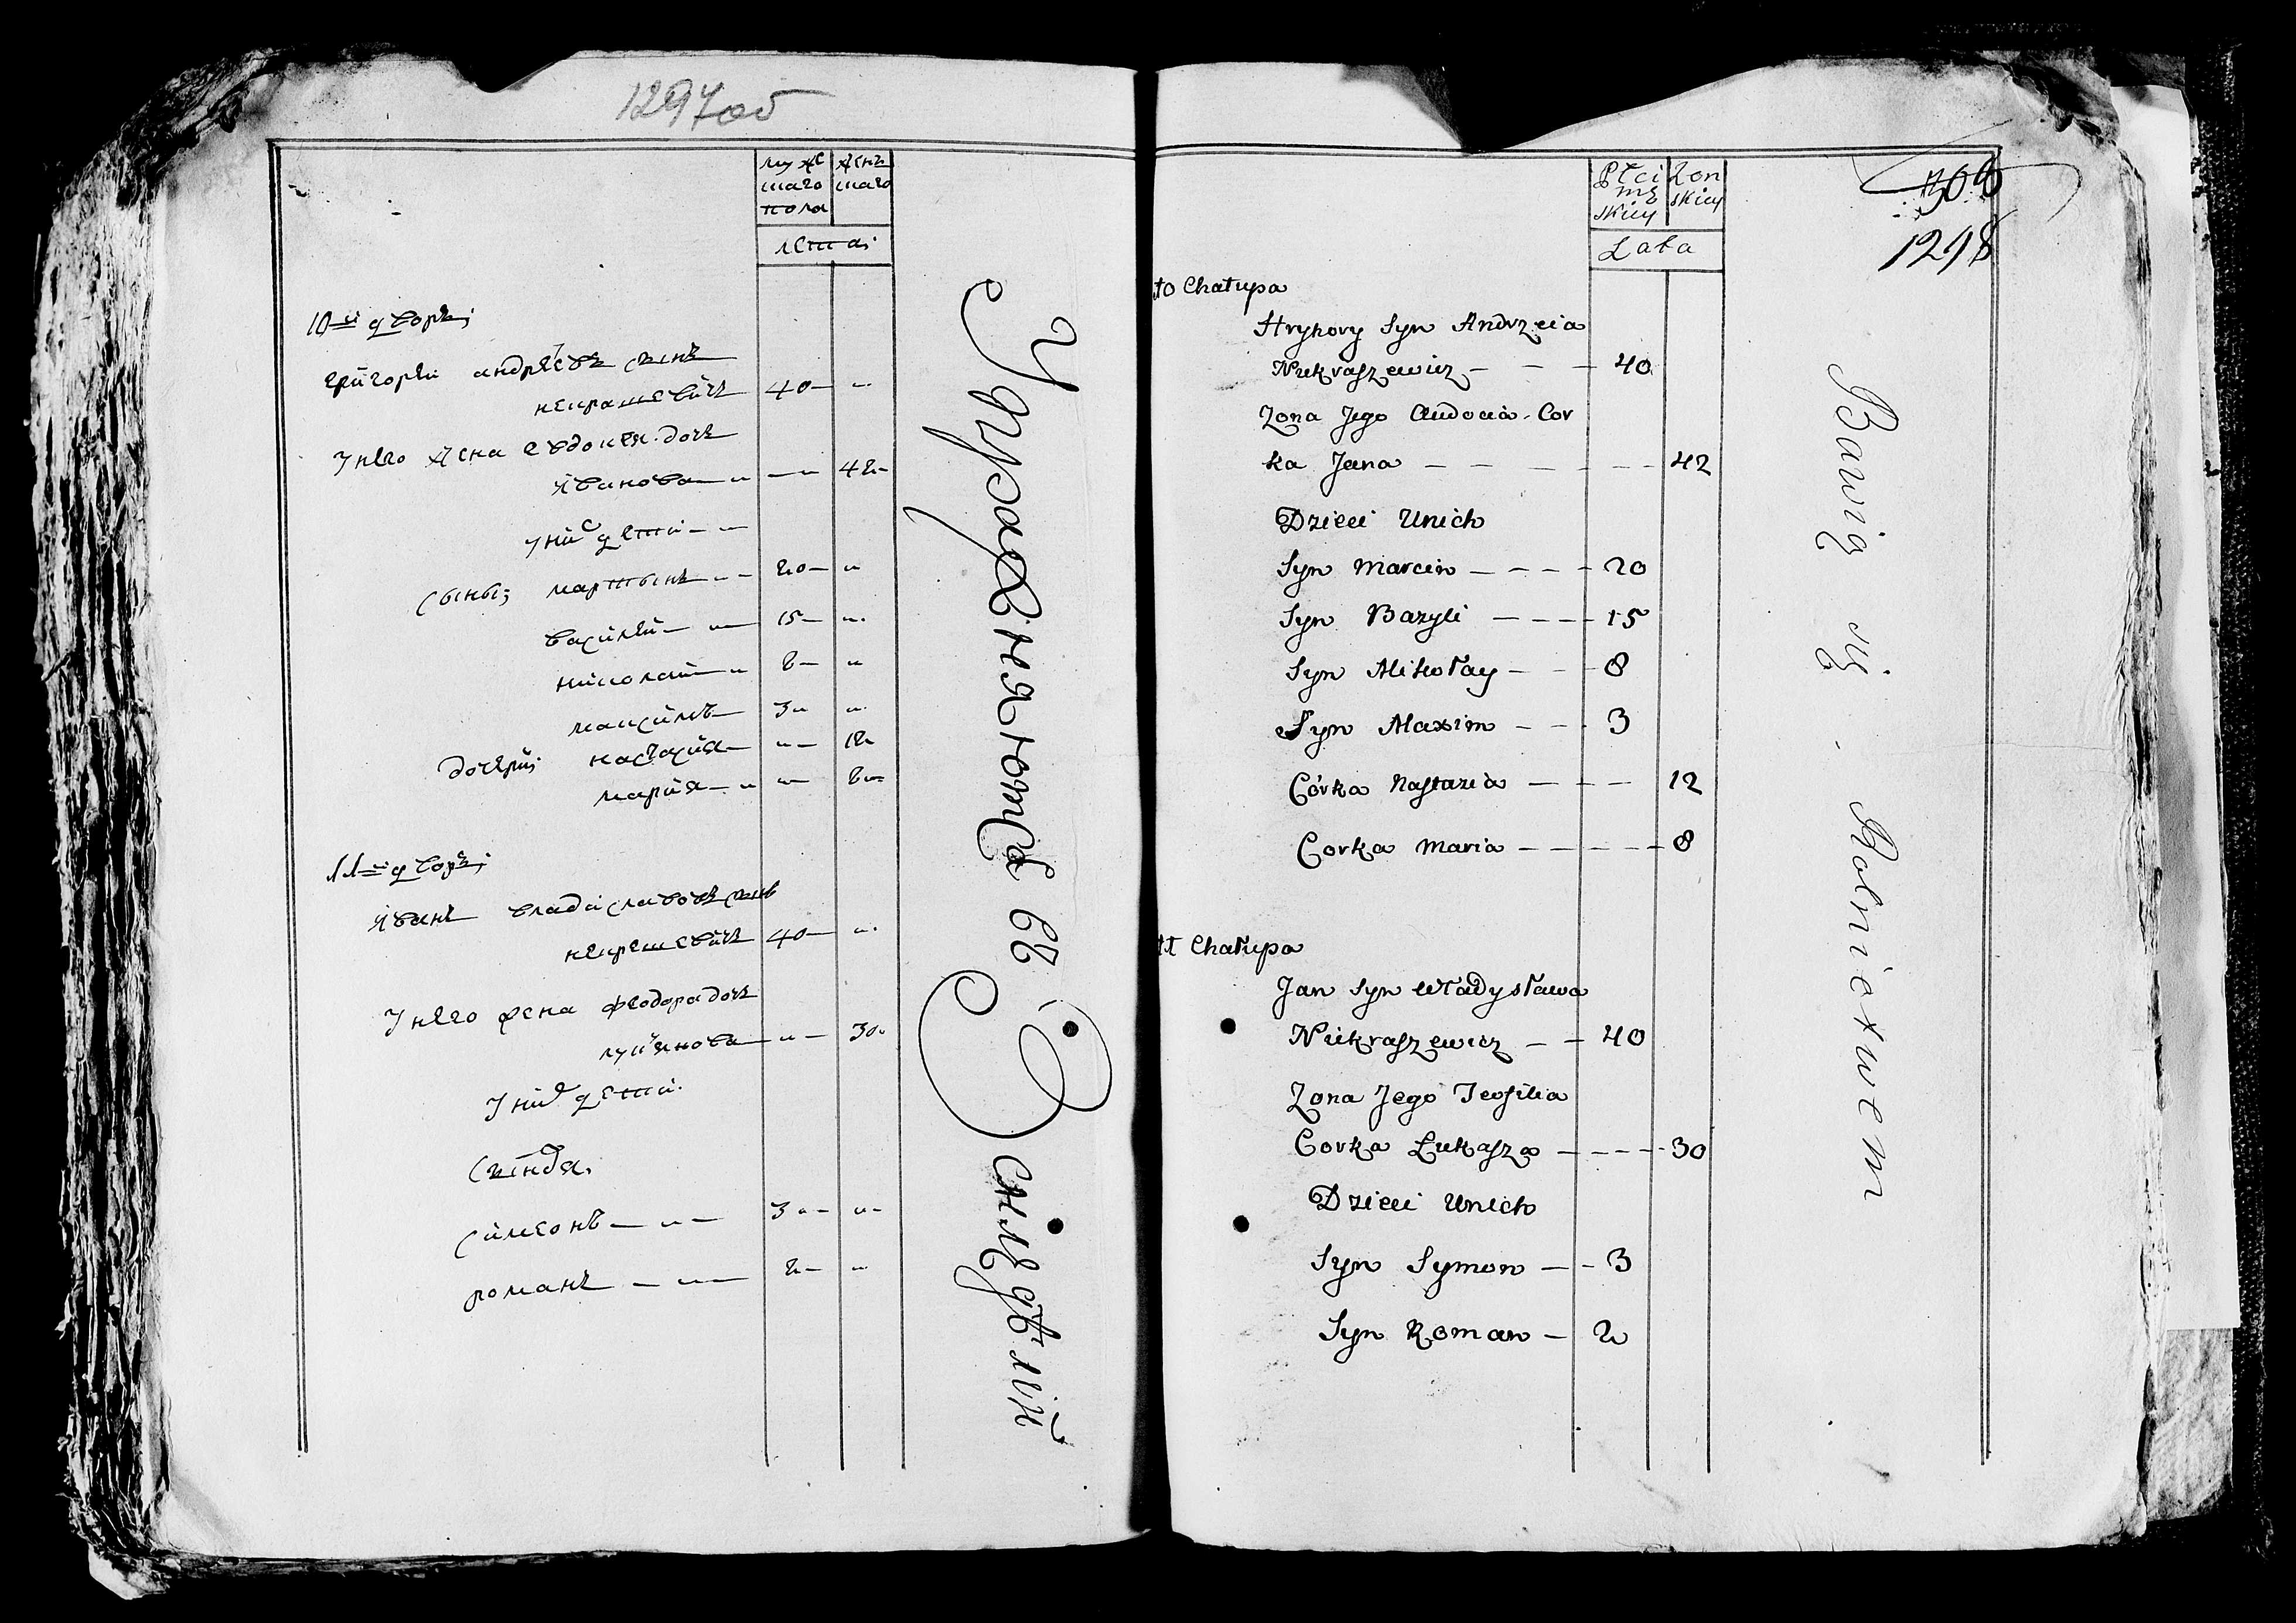 1297об
мужескаго пола
женскаго
лета
10й дворъ
григорей андреевъ сынъ
некрашевичъ 40
У него жена евдокея дочь
иванова 42
у них дети
сыны мартынъ 20
василей 15
николай 8
максимъ 3
дочери настасия 12
мария 8
11й дворъ
иванъ владиславовъ сынъ
некрашевичъ 40
У него жена феодора дочь
лукянова 30
У них дети
симеонъ 3
романъ 2
Упражняются въ
Земледѣлии
Płci
mę
skiey
Żon
skiey
Lata
1298
10 Chałupa
Hryhory Syn Andrzeia
Niekraszewicz 40
Zona Jego Audocia Cor
ka Jana 42
Dzieci Unich
Syn Marcin 20
Syn Bazyli 15
Syn Mikołay 8
Syn Maxim 3
Córka Nastazia 12
Corka Maria 8
11 Chałupa
Jan Syn Władysława
Niekraszewicz 40
Zona Jego Teofilia
Corka Łukasza 30
Dzieci Unich
Syn Symon 3
Syn Roman 2
Bawią się Rolnictwem